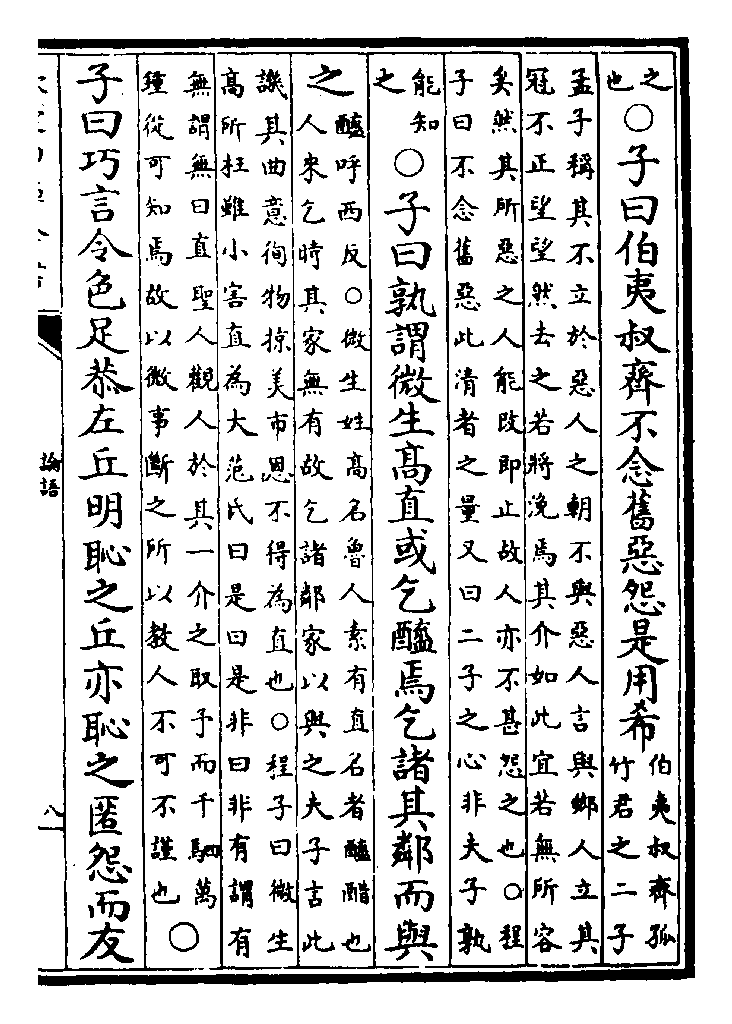 之
也
○子曰伯夷叔齊不念舊惡怨是用希
伯夷叔齊孤
竹君之二子
孟子稱其不立於惡人之朝不與惡人言與鄉人立其
冠不正望望然去之若將浼焉其介如此宜若無所容
矣然其所惡之人能改即止故人亦不甚怨之也○程
子曰不念舊惡此清者之量又曰二子之心非夫子孰
能知
之
○子曰孰謂微生髙直或乞醯焉乞諸其鄰而與
之
醯呼西反○微生姓髙名魯人素有直名者醯醋也
人來乞時其家無有故乞諸鄰家以與之夫子言此
譏其曲意徇物掠美市恩不得為直也○程子曰微生
髙所枉雖小害直為大范氏曰是曰是非曰非有謂有
無謂無曰直聖人觀人於其一介之取予而千駟萬
鍾從可知焉故以微事斷之所以教人不可不謹也
○
子曰巧言令色足恭左丘明恥之丘亦恥之匿怨而友
論語
八